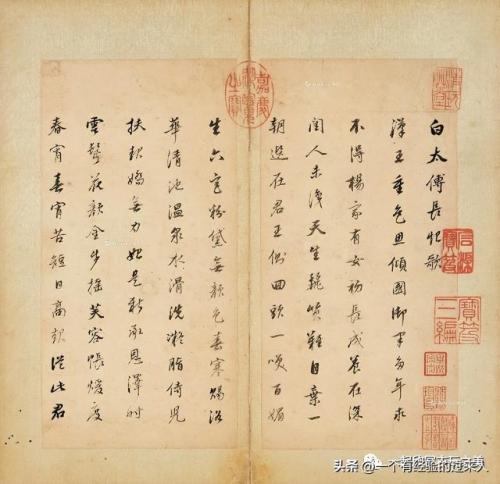 白太傅長恨歌
漢王重色思傾國御宇多年求
不得楊家有女初長成養在深
閨人未識天生麗質難自棄一
朝選在君王側回頭一笑百媚
生六宮粉黛無顏色春寒賜浴
華清池温泉水滑洗凝脂侍兒
扶起嬌無力始是新承恩澤時
雲鬢花顏金步搖芙蓉帳暖度
春宵春宵苦短日高起從此君
嘉慶御覽之寶
石渠寶笈
寶笈三編
头条 @一个有经验的过来人